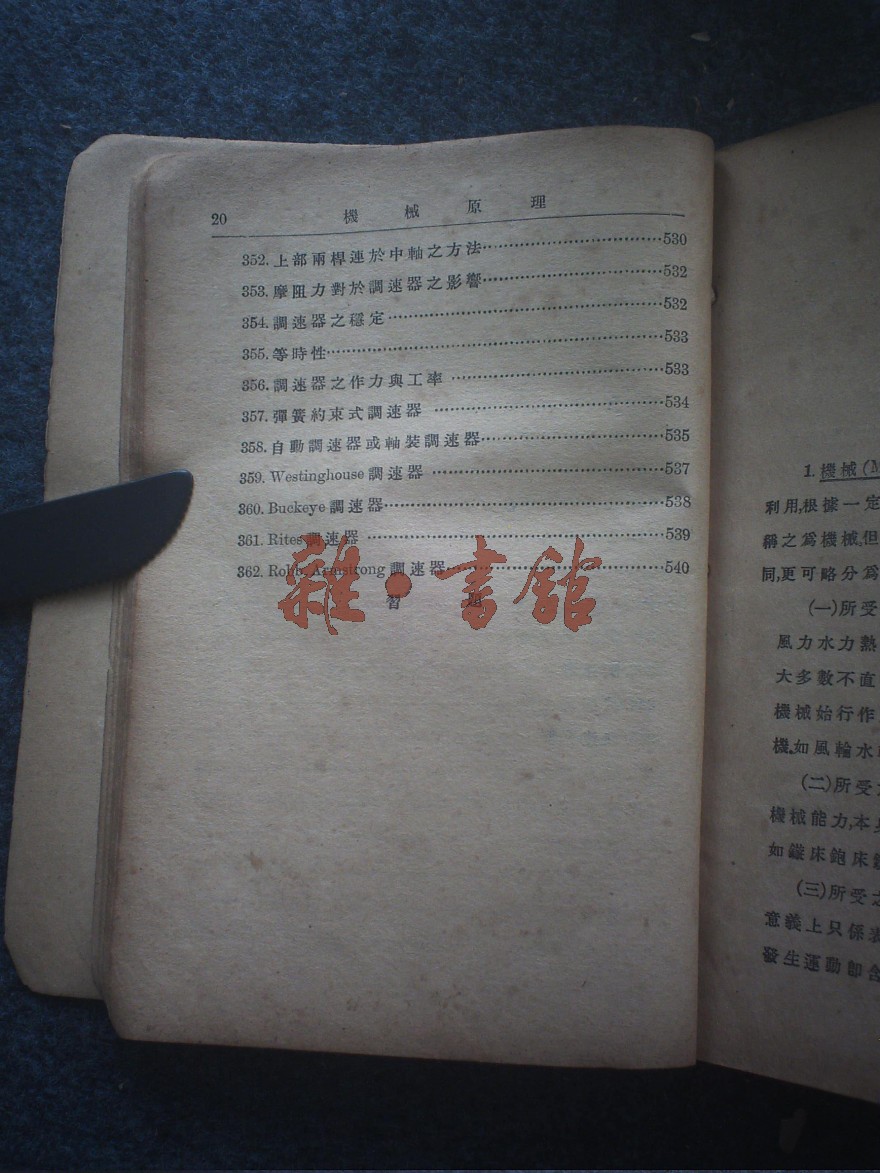 20 機械原理
352. 上部兩桿連於中軸之方法……530
353. 摩阻力對於調速器之影響……532
354. 調速器之穩定……532
355. 等時性……533
356. 調速器之作力與工率……533
357. 彈簧約束式調速器……534
358. 自動調速器或軸裝調速器……535
359. Westinghouse 調速器……537
360. Buckeye 調速器……538
361. Rites 調速器……539
362. Robb Armstrong 調速器……540
習題
雜·書館
1. 機械 (M
利用,根據一定
稱之爲機械,但
同,更可略分爲
(一)所受
風力水力熱
大多數不直
機械始行作
機,如風輪水
(二)所受
機械能力,本
如鏇床鉋床
(三)所受之
意義上只係表
發生運動卽含